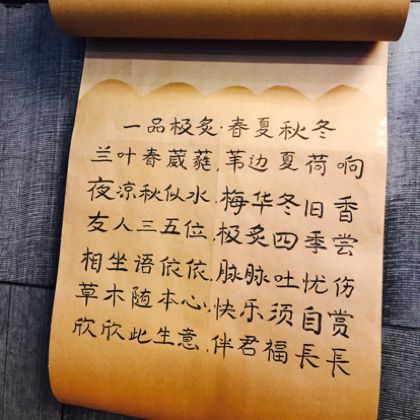 一品极炙·春夏秋冬
兰叶春葳蕤,苇边夏荷响
夜凉秋似水,梅华冬旧香
友人三五位,极炙四季尝
相坐语依依,脉脉吐忧伤
草木随本心,快乐须自赏
欣欣此生意,伴君福長長